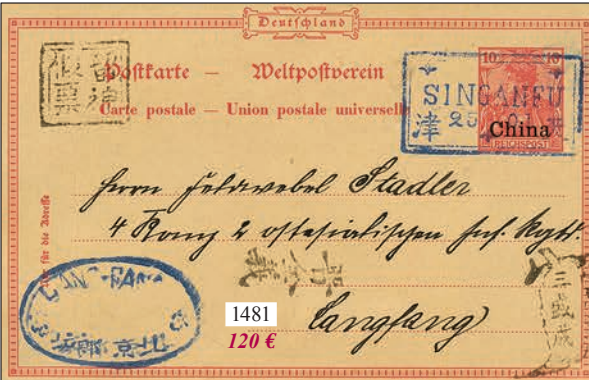 Deutschland
Postkarte — Weltpostverein
Carte postale — Union postale universelle
10 10
SINGANFU
津 25 01
China
REICHSPOST
für die Adresse
Herrn Feldwebel Stadler
4 Komp 2 ostasiatischen Inf. Rgts.
LANG-FANG
Langfang
1481
120 €